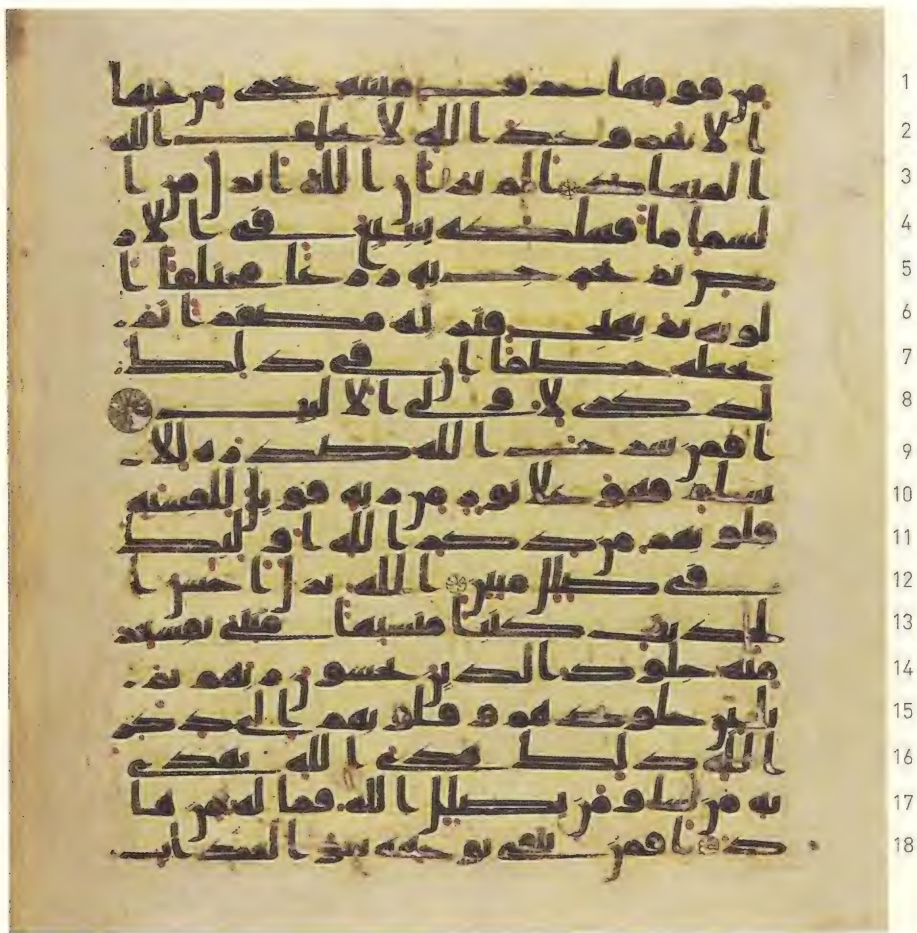 من فوقها غرف مبنية تجري من تحتها 1
الانهر وعد الله لا يخلف الله 2
الميعاد الم تر ان الله انزل من ا 3
لسما ما فسلكه ينبيع في الار 4
ض ثم يخرج به زرعا مختلفا ا 5
لونه ثم يهيج فتريه مصفرا ثم 6
يجعله حطما ان في ذلك 7
لذكرى لاولي الالبب 8
افمن شرح الله صدره للا 9
سلم فهو على نور من ربه فويل للقسيه 10
قلوبهم من ذكر الله اوليك 11
في ضلل مبين الله نزل احسن ا 12
لحديث كتبا متشبها مثني تقشعر 13
منه جلود الذين يخشون ربهم ثم 14
تلين جلودهم وقلوبهم الى ذكر 15
الله ذلك هدى الله يهدي 16
به من يشا ومن يضلل الله فما له من ها 17
د افمن يتقي بوجهه سو العذاب 18